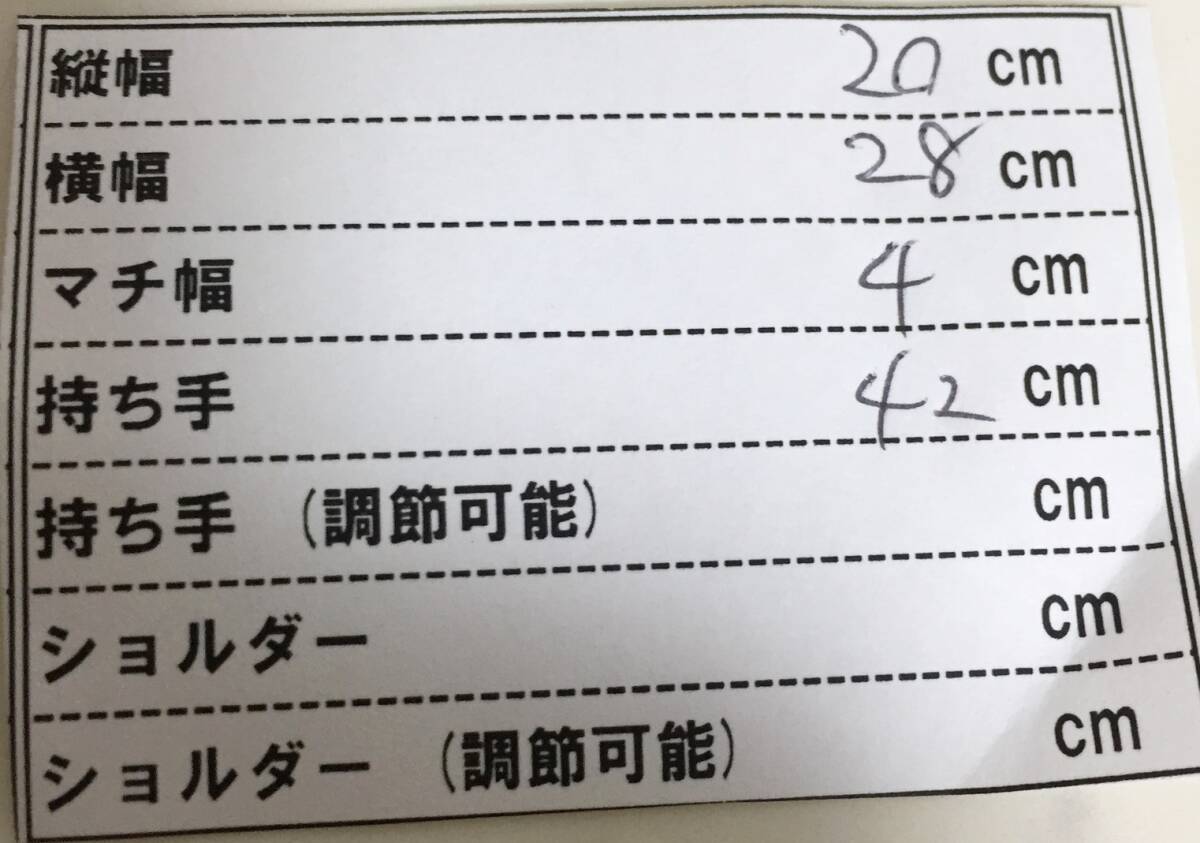 縦幅 20 cm
横幅 28 cm
マチ幅 4 cm
持ち手 42 cm
持ち手 (調節可能) cm
ショルダー cm
ショルダー (調節可能) cm